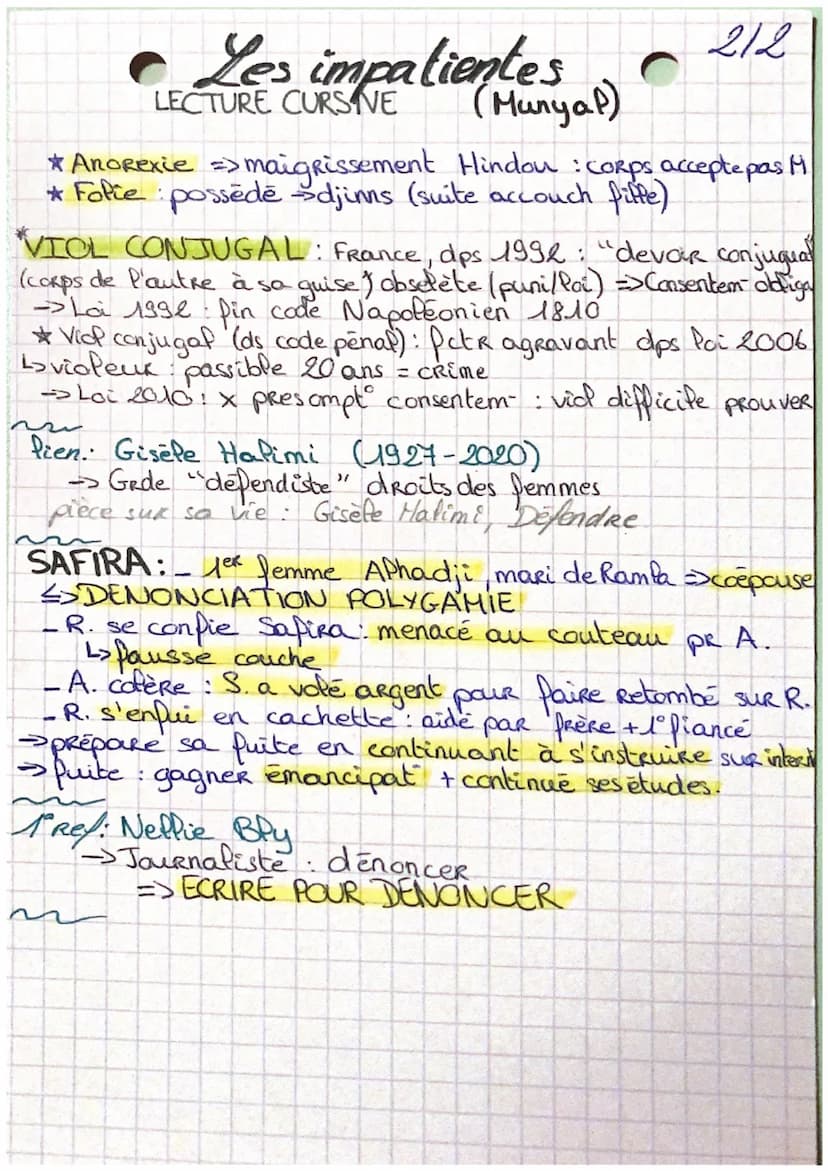 2/2
Les impatientes
LECTURE CURSIVE (Munyal)
* ANOREXIE => maigrissement Hindou : corps accepte pas M
* Folie : possédé → djinns (suite accouch fille)
* VIOL CONJUGAL : France, dps 1992 : "devoir conjugual
(corps de l'autre à sa guise) obselète (puni/loi) => Consentem- obliga
-> Loi 1992 : fin code Napoléonien 1810
* Viol conjugal (ds code pénal) : fctr agravant dps loi 2006
↳ violeur : passible 20 ans = crime
-> Loi 2010 : x presompt° consentem- : viol difficile prouver
lien : Gisèle Halimi (1927-2020)
-> Grde "défendiste" droits des femmes
pièce sur sa vie : Gisèle Halimi, Défendre
SAFIRA : - 1er femme Alhadji, mari de Ramla => coépouse
<=> DENONCIATION POLYGAMIE
- R. se confie Safira : menacé au couteau pr A.
↳ fausse couche
- A. colère : S. a volé argent pour faire retombé sur R.
- R. s'enfui en cachette : aidé par frère + 1° fiancé
=> prépare sa fuite en continuant à s'instruire sur intern
=> fuite : gagner émancipat° + continué ses études.
1° Ref : Nellie Bly
-> Journaliste : dénoncer
=> ECRIRE POUR DENONCER